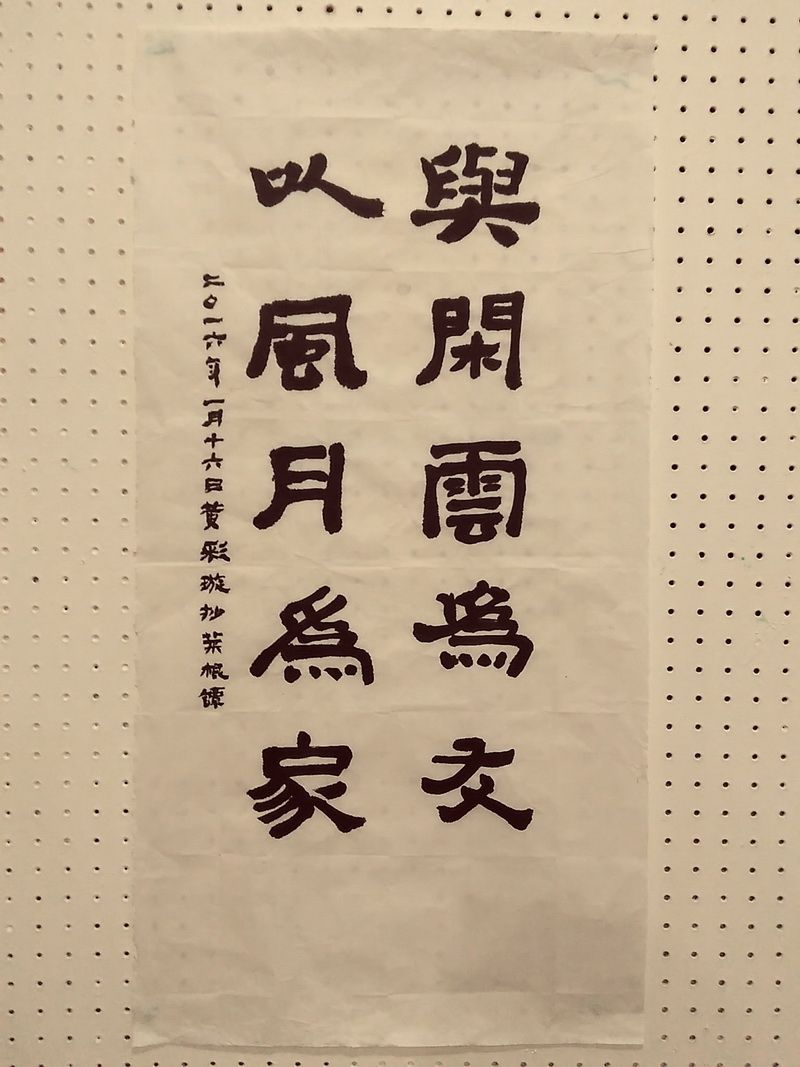 與閑雲為友
以風月為家
二〇一六年一月十六日黃彩璇抄菜根譚